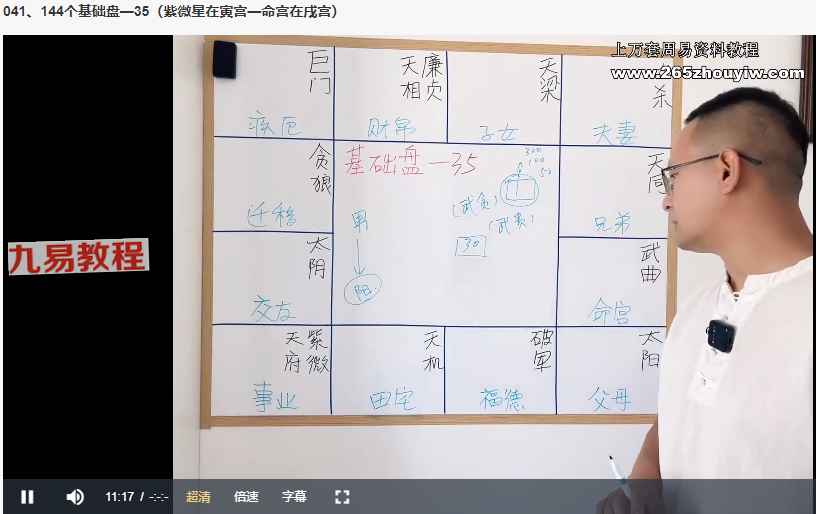 041、144个基础盘—35（紫微星在寅宫—命宫在戌宫）
上万套周易资料教程
www.265zhouyiw.com
巨门
疾厄
廉贞
天相
财帛
天梁
子女
杀
夫妻
贪狼
迁移
基础盘—35
300
100
50
(武贪)
(武贪)
30
男
阳
天同
兄弟
太阴
交友
武曲
命宫
紫微
天府
事业
天机
田宅
破军
福德
太阳
父母
九易教程
11:17 / -:-:-
超清
倍速
字幕